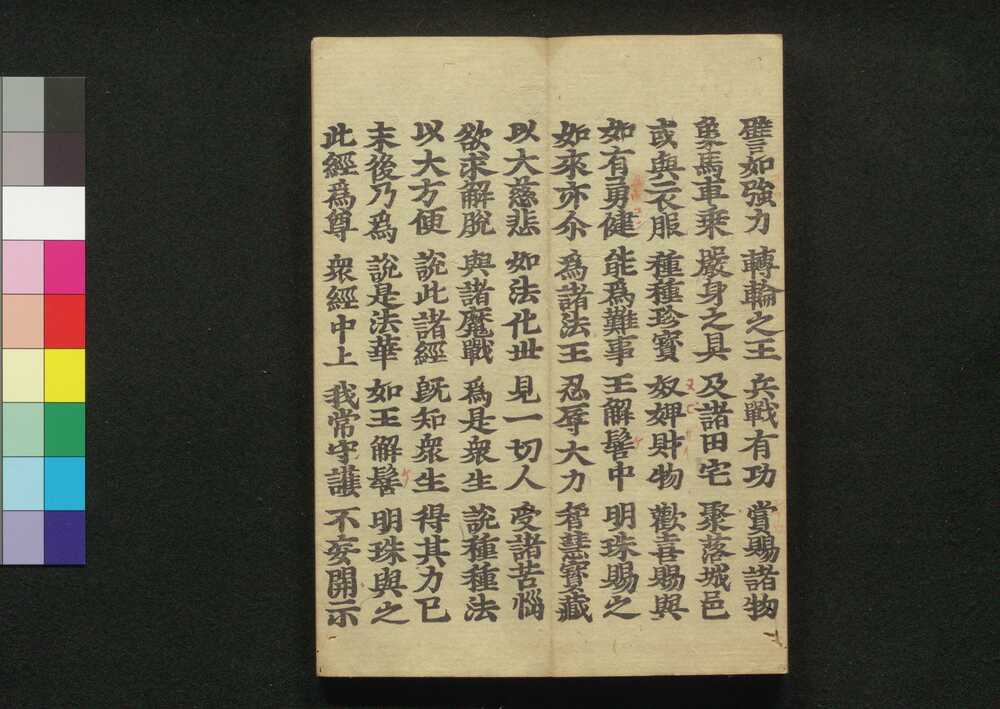 譬如強力 轉輪之王 兵戰有功 賞賜諸物
象馬車乘 嚴身之具 及諸田宅 聚落城邑
或與衣服 種種珍寶 奴婢財物 歡喜賜與
如有勇健 能爲難事 王解髻中 明珠賜之
如來亦尒 爲諸法王 忍辱大力 智慧寶藏
以大慈悲 如法化世 見一切人 受諸苦惱
欲求解脫 與諸魔戰 爲是衆生 說種種法
以大方便 說此諸經 旣知衆生 得其力已
末後乃爲 說是法華 如王解髻 明珠與之
此經爲尊 衆經中上 我常守護 不妄開示